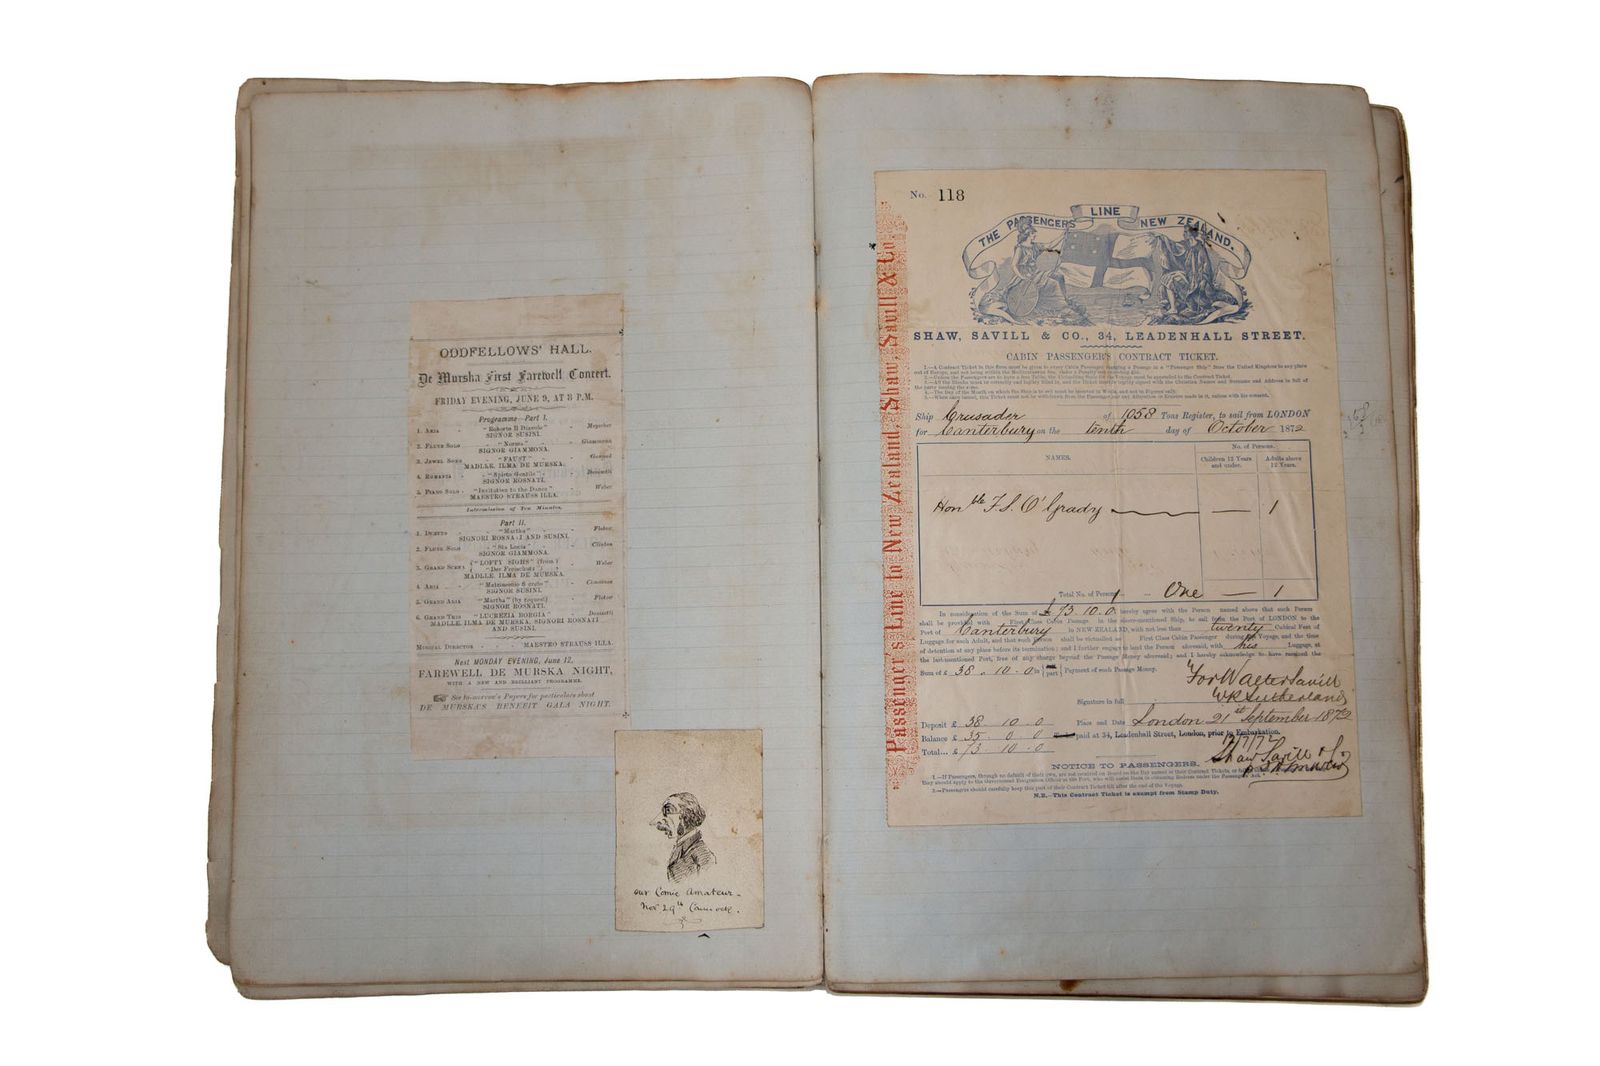 ODDFELLOWS' HALL.
De Murska First Farewell Concert.
FRIDAY EVENING, JUNE 9, AT 8 P.M.
Programme—Part I.
1. ARIA - "Roberto Il Diavolo" - Meyerber
SIGNOR SUSINI.
2. FLUTE SOLO - "Norma" - Giammona
SIGNOR GIAMMONA.
3. JEWEL SONG - "FAUST" - Gounod
MADLLE. ILMA DE MURSKA.
4. ROMANZA - "Spirto Gentile" - Donizetti
SIGNOR ROSNATI.
5. PIANO SOLO - "Invitation to the Dance" - Weber
MAESTRO STRAUSS ILLA.
Intermission of Ten Minutes.
Part II.
1. DUETTO - "Martha" - Flotow
SIGNORI ROSNATI AND SUSINI.
2. FLUTE SOLO - "Sta Lonta" - Clinton
SIGNOR GIAMMONA.
3. GRAND SCENA { "LOFTY SIGHS" (from) "Der Freischutz" } Weber
MADLLE. ILMA DE MURSKA.
4. ARIA - "Matrimonio Segreto" - Cimarosa
SIGNOR SUSINI.
5. GRAND ARIA - "Martha" (by request) - Flotow
SIGNOR ROSNATI.
6. GRAND TRIO - "LUCREZIA BORGIA" - Donizetti
MADLLE. ILMA DE MURSKA, SIGNORI ROSNATI
AND SUSINI.
MUSICAL DIRECTOR - MAESTRO STRAUSS ILLA.
Next MONDAY EVENING, June 12,
FAREWELL DE MURSKA NIGHT,
WITH A NEW AND BRILLIANT PROGRAMME.
See to-morrow's Papers for particulars about
DE MURSKA'S BENEFIT GALA NIGHT.
our Comic Amateur.
Nov 29th
No. 118
THE PASSENGERS LINE NEW ZEALAND.
Passenger's Line to New Zealand, Shaw, Savill & Co
SHAW, SAVILL & CO., 34, LEADENHALL STREET.
CABIN PASSENGER'S CONTRACT TICKET.
Ship Crusader of 1058 Tons Register, to sail from LONDON
for Canterbury on the tenth day of October 1872
NAMES.
No. of Persons.
Children 12 Years and under.
Adults above 12 Years.
Honble F. S. O'Grady — 1
Total No. of Persons One — 1
In consideration of the Sum of £73.10.0 hereby agree with the Person named above that such Person
shall be provided with First Class Cabin Passage in the above-mentioned Ship, to sail from the Port of LONDON to the
Port of Canterbury in NEW ZEALAND, with not less than twenty Cubical Feet of
Luggage for each Adult, and that such person shall be victualled as First Class Cabin Passenger during the Voyage, and the time
of detention at any place before its termination; and I further engage to land the Person aforesaid, with his Luggage, at
the last-mentioned Port, free of any charge beyond the Passage Money aforesaid; and I hereby acknowledge to have received the
Sum of £38.10.0 in part Payment of such Passage Money.
For Walter Savill
Signature in full W R Sutherland
Deposit £ 38 10 0 Place and Date London 21st September 1872
Balance £ 35 0 0 paid at 34, Leadenhall Street, London, prior to Embarkation.
Total... £ 73 10 0
Shaw Savill & Co
NOTICE TO PASSENGERS.
2.—Passengers should carefully keep this part of their Contract Ticket till after the end of the Voyage.
N.B.—This Contract Ticket is exempt from Stamp Duty.